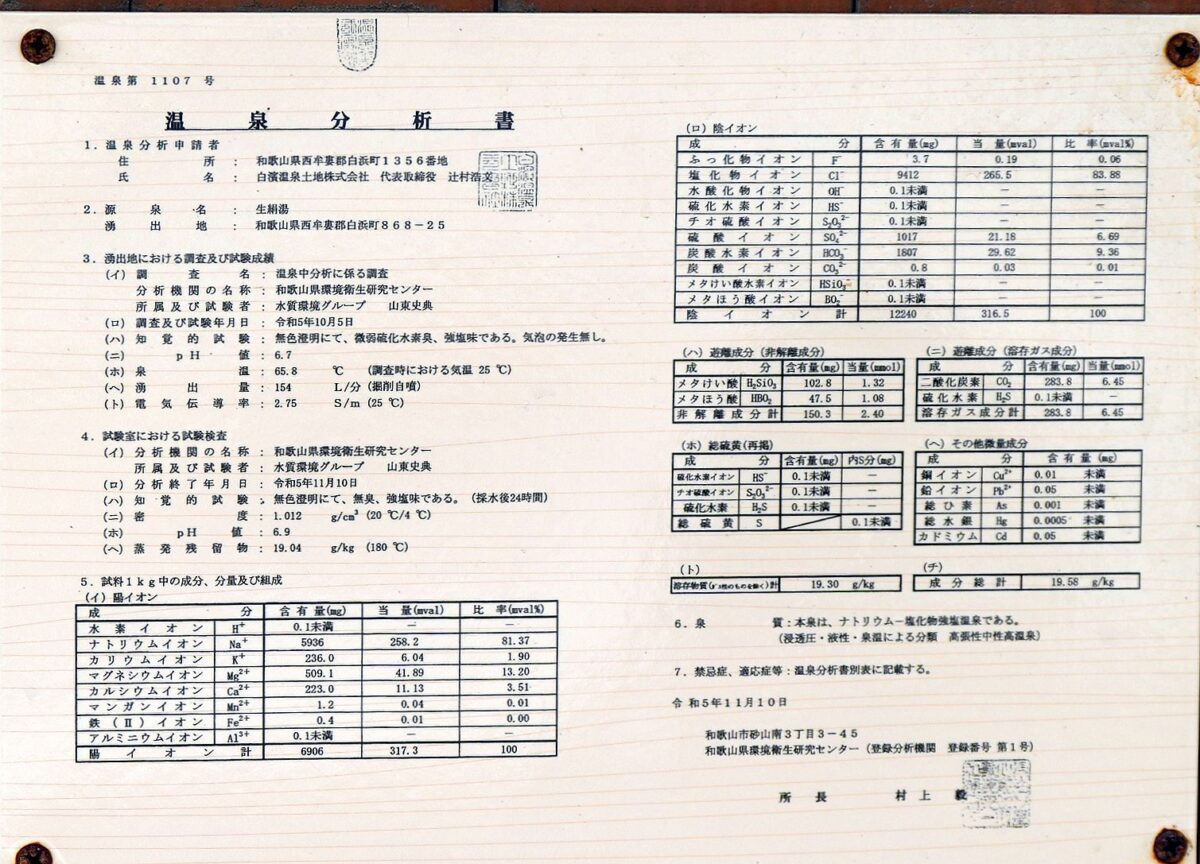 温泉第 1107 号
温泉分析書
1．温泉分析申請者
住所 ： 和歌山県西牟婁郡白浜町1356番地
氏名 ： 白濱温泉土地株式会社 代表取締役 辻村浩文
2．源泉名 ： 生絹湯
湧出地 ： 和歌山県西牟婁郡白浜町868－25
3．湧出地における調査及び試験成績
(イ) 調査名 ： 温泉中分析に係る調査
分析機関の名称 ： 和歌山県環境衛生研究センター
所属及び試験者 ： 水質環境グループ 山東史典
(ロ) 調査及び試験年月日 ： 令和5年10月5日
(ハ) 知覚的試験 ： 無色澄明にて、微弱硫化水素臭、強塩味である。気泡の発生無し。
(ニ) pH値 ： 6.7
(ホ) 泉温 ： 65.8 ℃ (調査時における気温 25 ℃)
(ヘ) 湧出量 ： 154 L/分 (掘削自噴)
(ト) 電気伝導率 ： 2.75 S/m (25 ℃)
4．試験室における試験検査
(イ) 分析機関の名称 ： 和歌山県環境衛生研究センター
所属及び試験者 ： 水質環境グループ 山東史典
(ロ) 分析終了年月日 ： 令和5年11月10日
(ハ) 知覚的試験 ． 無色澄明にて、無臭、強塩味である。(採水後24時間)
(ニ) 密度 ： 1.012 g/cm³ (20 ℃/4 ℃)
(ホ) pH値 ： 6.9
(ヘ) 蒸発残留物 ： 19.04 g/kg (180 ℃)
5．試料1kg中の成分、分量及び組成
(イ) 陽イオン
成分 含有量(mg) 当量(mval) 比率(mval%)
水素イオン H⁺ 0.1未満 － －
ナトリウムイオン Na⁺ 5936 258.2 81.37
カリウムイオン K⁺ 236.0 6.04 1.90
マグネシウムイオン Mg²⁺ 509.1 41.89 13.20
カルシウムイオン Ca²⁺ 223.0 11.13 3.51
マンガンイオン Mn²⁺ 1.2 0.04 0.01
鉄(Ⅱ)イオン Fe²⁺ 0.4 0.01 0.00
アルミニウムイオン Al³⁺ 0.1未満 － －
陽イオン計 6906 317.3 100
(ロ) 陰イオン
成分 含有量(mg) 当量(mval) 比率(mval%)
ふっ化物イオン F⁻ 3.7 0.19 0.06
塩化物イオン Cl⁻ 9412 265.5 83.88
水酸化物イオン OH⁻ 0.1未満 － －
硫化水素イオン HS⁻ 0.1未満 － －
チオ硫酸イオン S₂O₃²⁻ 0.1未満 － －
硫酸イオン SO₄²⁻ 1017 21.18 6.69
炭酸水素イオン HCO₃⁻ 1807 29.62 9.36
炭酸イオン CO₃²⁻ 0.8 0.03 0.01
メタけい酸水素イオン HSiO₃⁻ 0.1未満 － －
メタほう酸イオン BO₂⁻ 0.1未満 － －
陰イオン計 12240 316.5 100
(ハ) 遊離成分 (非解離成分)
成分 含有量(mg) 当量(mmol)
メタけい酸 H₂SiO₃ 102.8 1.32
メタほう酸 HBO₂ 47.5 1.08
非解離成分計 150.3 2.40
(ニ) 遊離成分 (溶存ガス成分)
成分 含有量(mg) 当量(mmol)
二酸化炭素 CO₂ 283.8 6.45
硫化水素 H₂S 0.1未満 －
溶存ガス成分計 283.8 6.45
(ホ) 総硫黄(再掲)
成分 含有量(mg) 内S分(mg)
硫化水素イオン HS⁻ 0.1未満 －
チオ硫酸イオン S₂O₃²⁻ 0.1未満 －
硫化水素 H₂S 0.1未満 －
総硫黄 S 0.1未満
(ヘ) その他微量成分
成分 含有量(mg)
銅イオン Cu²⁺ 0.01 未満
鉛イオン Pb²⁺ 0.05 未満
総ひ素 As 0.001 未満
総水銀 Hg 0.0005 未満
カドミウム Cd 0.05 未満
(ト)
溶存物質(ガス性のものを除く)計 19.30 g/kg
(チ)
成分総計 19.58 g/kg
6．泉質：本泉は、ナトリウム－塩化物強塩温泉である。
(浸透圧・液性・泉温による分類 高張性中性高温泉)
7．禁忌症、適応症等：温泉分析書別表に記載する。
令和5年11月10日
和歌山市砂山南3丁目3－45
和歌山県環境衛生研究センター (登録分析機関 登録番号 第1号)
所長 村上 毅